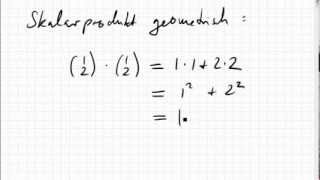 Skalarprodukt geometrisch :
(1 2) · (1 2) = 1·1 + 2·2
= 1² + 2²
= 1